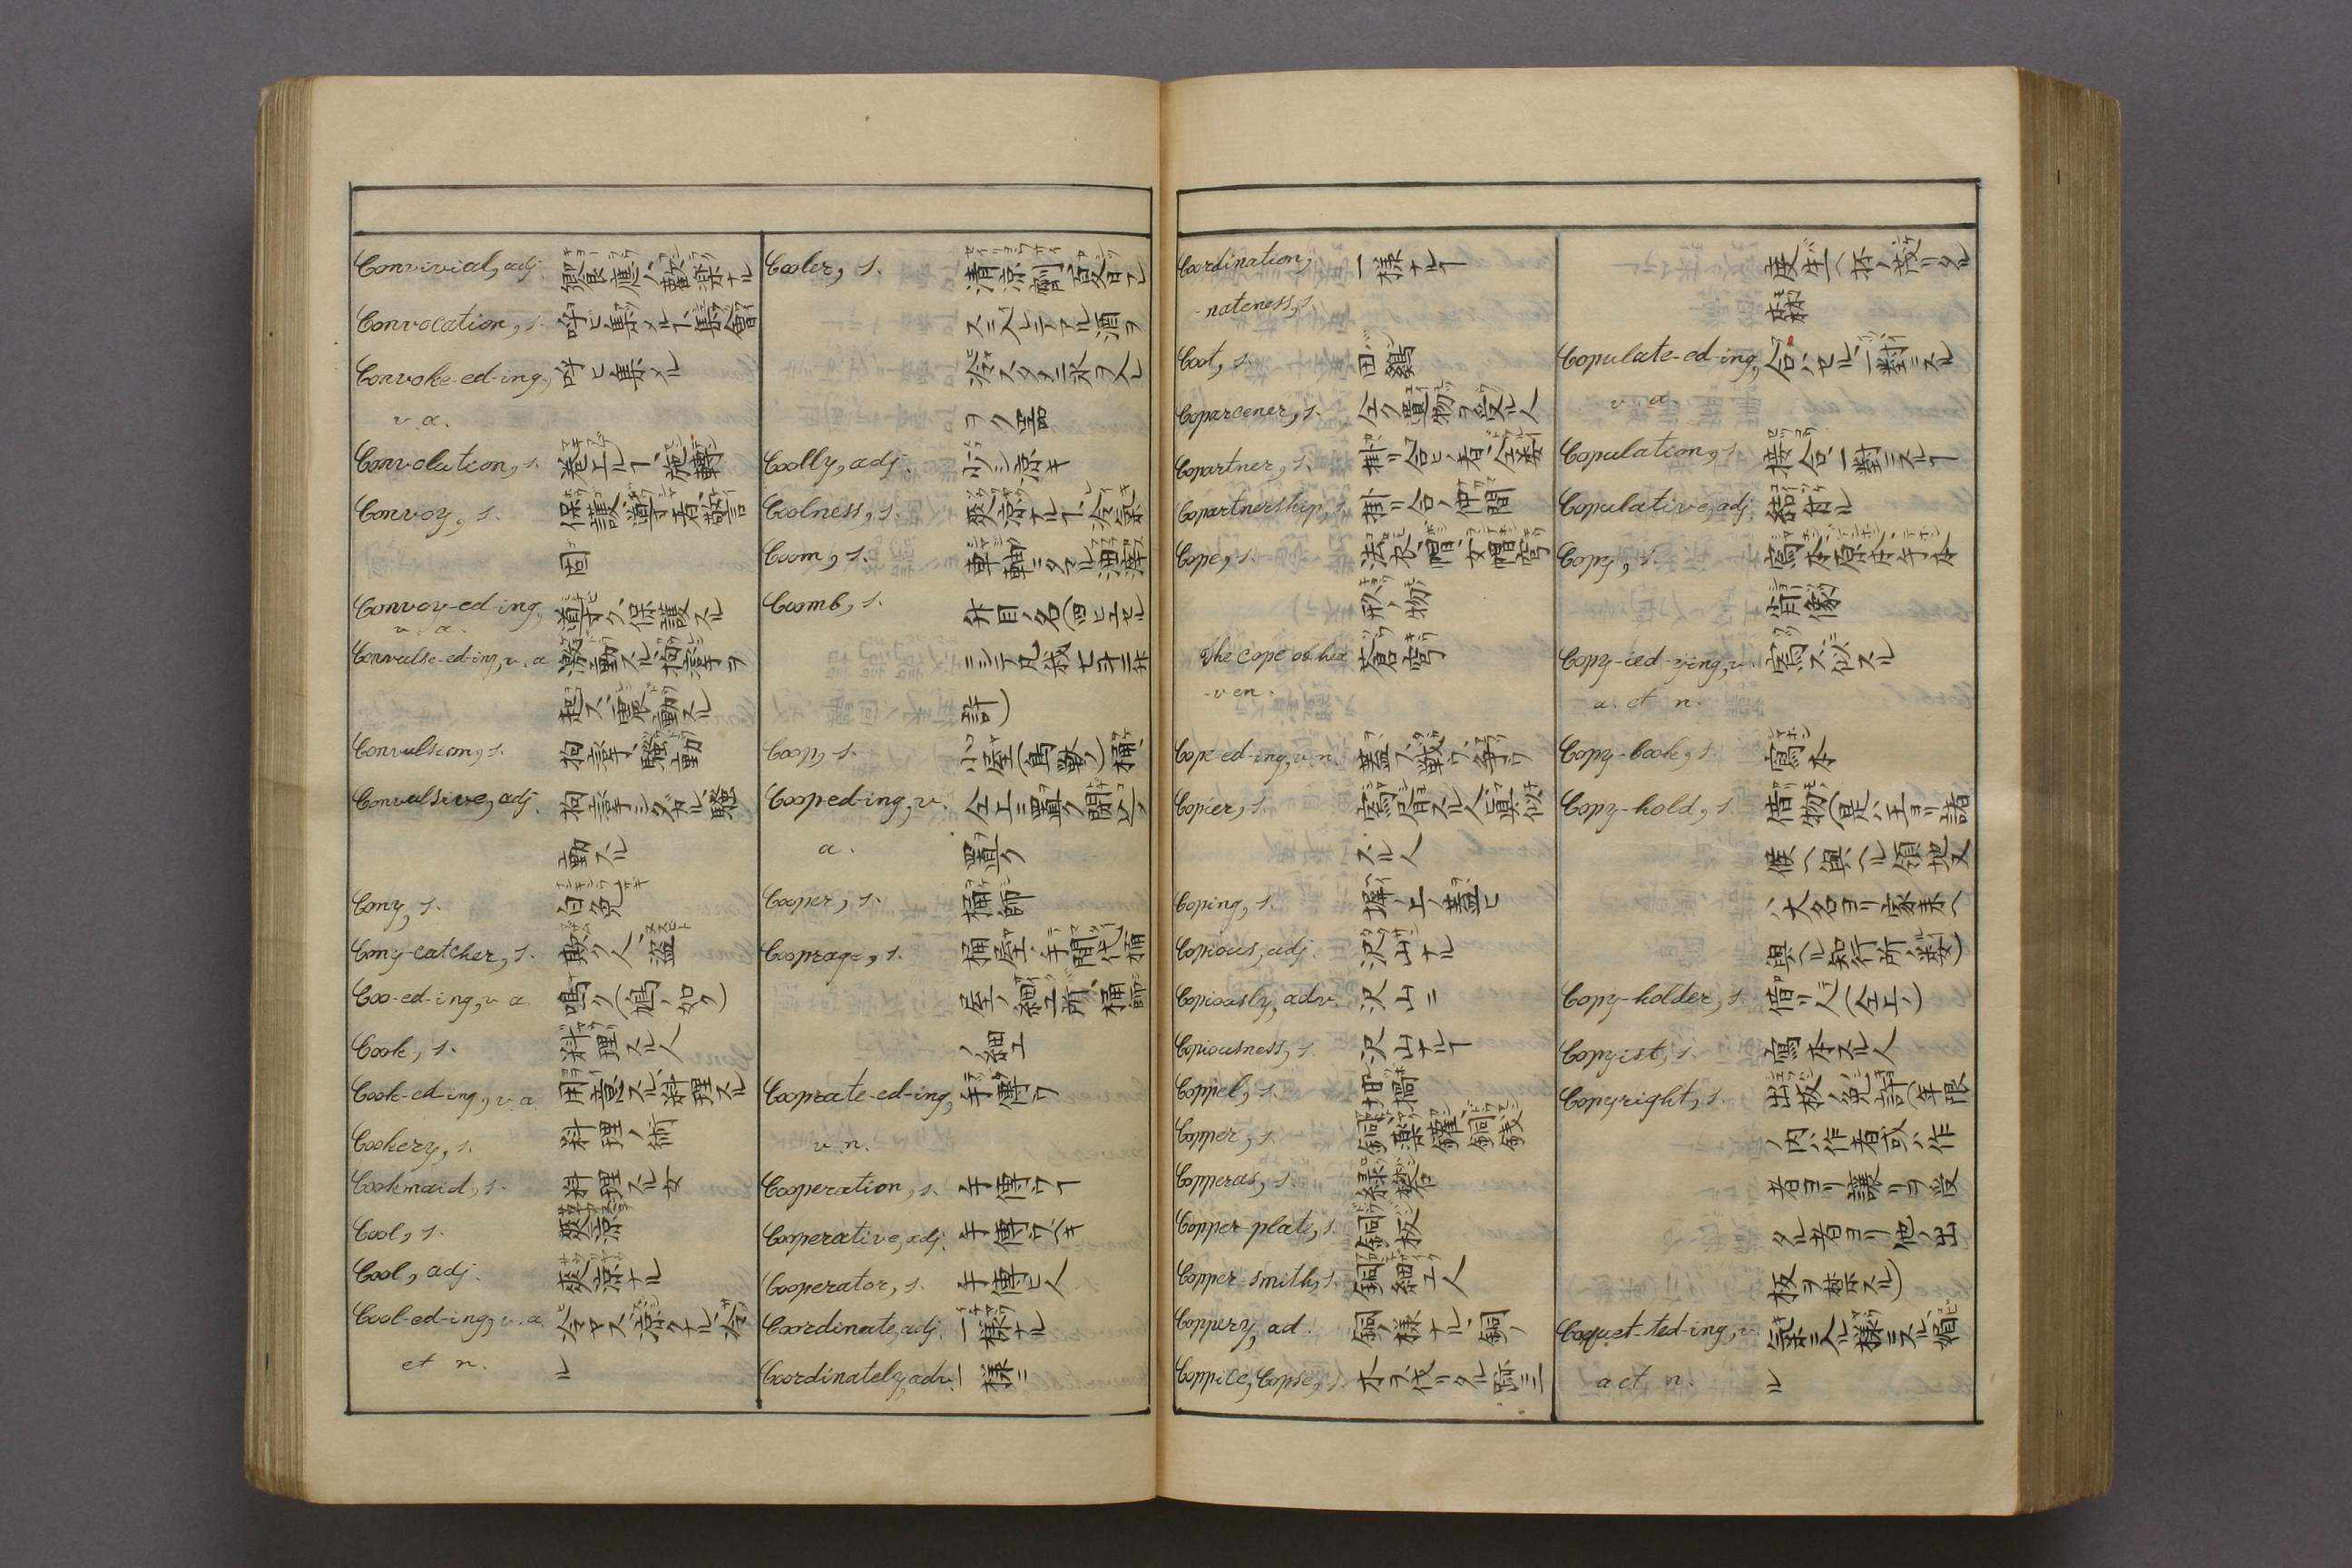 Convivial, adj. 饗應ノ、歡樂ナル
Convocation, s. 呼ビ集メルヿ、集會
Convoke-ed-ing, 呼ビ集メル
v. a.
Convolution, s. 巻上ルヿ、旋轉
Convoy, s. 保護、導者、警
固
Convoy-ed-ing, 導ク、保護スル
v. a.
Convulse-ed-ing, v. a 激動スル、拘攣ヲ
起ス、震動スル
Convulsion, s. 拘攣、騷動
Convulsive, adj. 拘攣シタル、騷
動スル
Cony, s. 白兎
Cony-catcher, s. 欺ク人、盗
Coo-ed-ing, v a. 鳴ク(鳩ノ如ク)
Cook, s. 料理スル人
Cook-ed-ing, v. a. 用意スル、料理スル
Cookery, s. 料理ノ術
Cookmaid, s. 料理スル女
Cool, s. 爽涼
Cool, adj. 爽涼ナル
Cool-ed-ing, v. a. 冷マス、涼クナル、冷
et n. ル
Cooler, s.
スニ入レテアル酒ヲ
冷スタメニ氷ヲ入レ
ヲク器
Coolly, adj. 少シ涼キ
Coolness, s. 爽涼ナルヿ、冷氣
Coom, s. 車軸ニタマル油滓
Coomb, s. 升目ノ名(四ビュセル
ニシテ凡我七斗二升
計)
Coop, s. 小屋(鳥獸ノ)桶
Cooped-ing, v. 仝上ニ置ク、閉込メ
a. 置ク
Cooper, s. 桶師
Cooprage, s. 桶屋ノ手間代、桶
屋ノ細工所、桶師
ノ細工
Cooprate-ed-ing, 手傳フ
v. n.
Cooperation, s. 手傳フヿ
Cooperative, adj. 手傳フベキ
Cooperator, s. 手傳ヒ人
Coordinate, adj. 一様ナル
Coordinately, adv. 一様ニ
Coordination, 一様ナルヿ
-nateness, s.
Coot, s. 田鷄
Coparcener, s. 仝ク遺物ヲ受ル人
Copartner, s. 掛リ合ヒノ者、
Copartnership, s. 掛リ合ノ仲間
Cope, s. 法衣ノ帽、女帽、穹
形ノ物
The cope of hea 蒼穹
-ven.
Cope-ed-ing, v. n. 蓋フ、戰フ、爭フ
Copier, s. 寫シ者スル人、眞似
スル人
Coping, s. 塀ノ上ノ蓋ヒ
Copious, adj. 沢山ナル
Copiously, adv. 沢山ニ
Copiousness, s. 沢山ナルヿ
Coppel, s. 坩堝
Copper, s. 銅、藥鑵、銅錢
Copperas, s. 緑礬
Copper-plate, s. 銅板
Copper-smith, s. 銅細工人
Coppery, ad. 銅ノ様ナル、銅ノ
Coppice, Copse, s. 木ヲ伐リタル跡ニ二
度生ヘ
林
Copulate-ed-ing, 合ハセル、一對ニスル
v. a.
Copulation, s. 接合、一對ニスルヿ
Copulative, adj. 結合ル
Copy, s. 寫本、原本、手本
肖像
Copy-ied-ying, v. 寫ス、似スル
a. et n.
Copy-book, s. 寫本
Copy-hold, s. 借物(是ハ王ヨリ諸
候ヘ與ヘル領地又
ハ大名ヨリ家来ヘ
與ヘル知行所ノ類)
Copy-holder, s. 借リ人(仝上ノ)
Copyist, s. 寫本スル人
Copyright, s. 出板ノ免許(年限
ノ内ハ作者或ハ作
者ヨリ讓リヲ受
タル者ヨリ他ノ出
板ヲ禁スル)
Coquet-ted-ing, v. 氣ニ入ル様ニスル、媚
a et n. ル